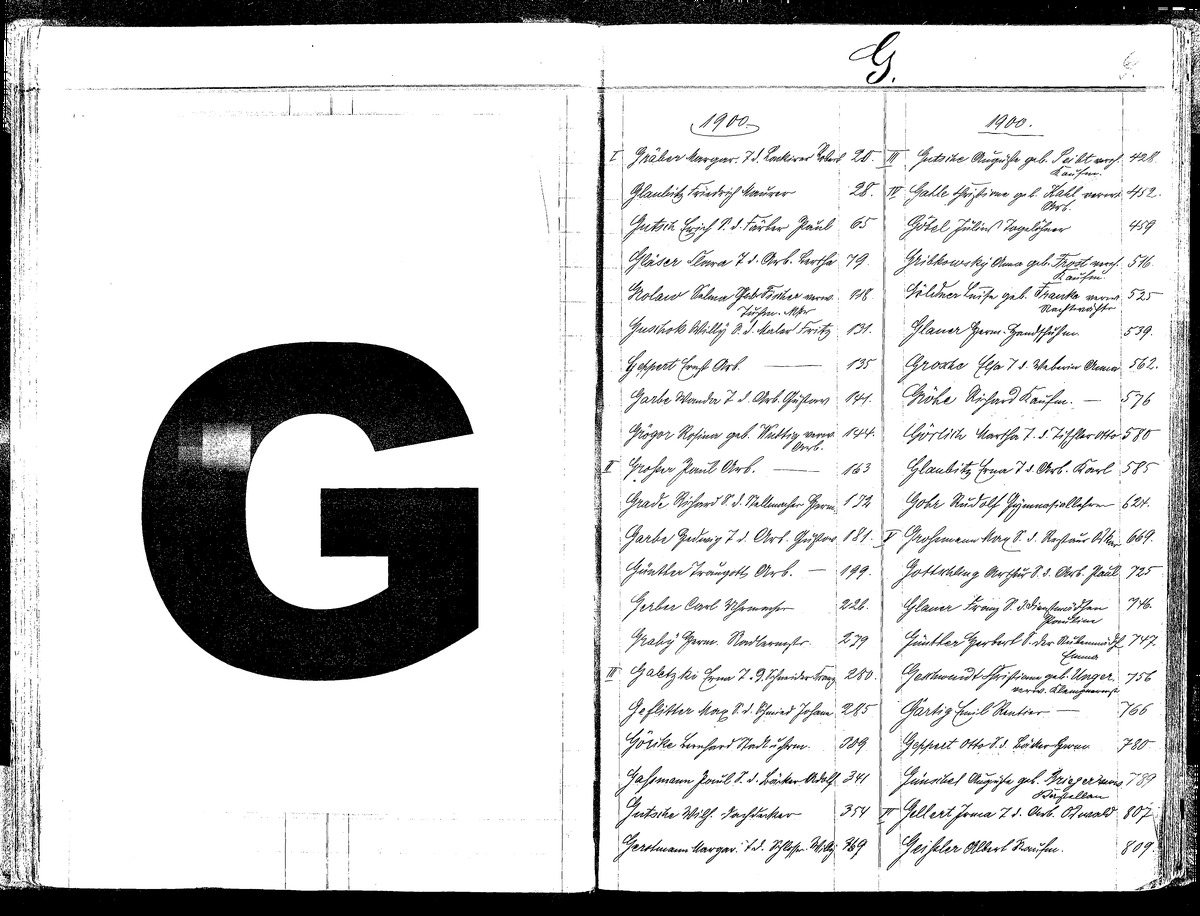 G
G.
1900.
I Gräber Margar. T. d. Lackirer Robert 20.
Glaubitz Friedrich Maurer 28.
Gutsch Erich S. d. Färber Paul 65
Gläser Clara T. d. Arb. Bertha 79.
Grolaw Selma geb. Fischer verw. 118.
Tuchm. Mstr
Guschok Willy S. d. Maler Fritz 131.
Geppert Ernst Arb. 135
Garbe Wanda T. d. Arb. Gustav 141.
Grögor Rosina geb. Wuttig verw. 144.
Arb.
II Großer Paul Arb. 163
Grade Richard S. d. Stellmacher Herm. 172
Garbe Hedwig T. d. Arb. Gustav 181.
Günther Traugott Arb. 199.
Gerber Carl Uhrmacher 226.
Graby Herm. 279
III Galetzki Erna T. d. Schneider Franz 280.
Geflitter Max S. d. Schmied Johann 285
Göricke Bernhard 309
Gaßmann Paul S. d. Bäcker Adolf 341
Gutsche Wilh. Dachdecker 354
Gerstmann Margar. T. d. Schlosser Willy 369
1900.
III Gutsche Auguste geb. Seibt verh. 428
Kaufm.
IV Galle Christiane geb. Kahl verw. 452.
Arb.
Göbel Julius Tagelöhner 459
Gribkowsky Anna geb. Frost verh. 516
Kaufm.
Göldner Luise geb. Franke verw. 525
Nachtwächter
Glauer Herm. Handschuhm. 539.
Grosche Elsa T. d. Weberin Anna 562.
Gröhe Richard Kaufm. 576
Görlich Martha T. d. Tischler Otto 580
Glaubitz Erna T. d. Arb. Karl 585
Gohr Rudolf Gymnasiallehrer 624.
V Großmann Max S. d. Restaur. 669.
Gottschling Arthur S. d. Arb. Paul 725
Glauer Franz S. d. Dienstmädchen 746.
Pauline
Günther Herbert S. der 747.
Emma
Christiane geb. Unger 756
verw. Klempnermstr
Gärtig Emil Rentier 766
Geppert Otto S. d. Bäcker Herm. 780
Günschel Auguste geb. Krieger verw. 789
Kastellan
VI Gellert Irma T. d. Arb. Oswald 807
Geißler Albert Kaufm. 809.